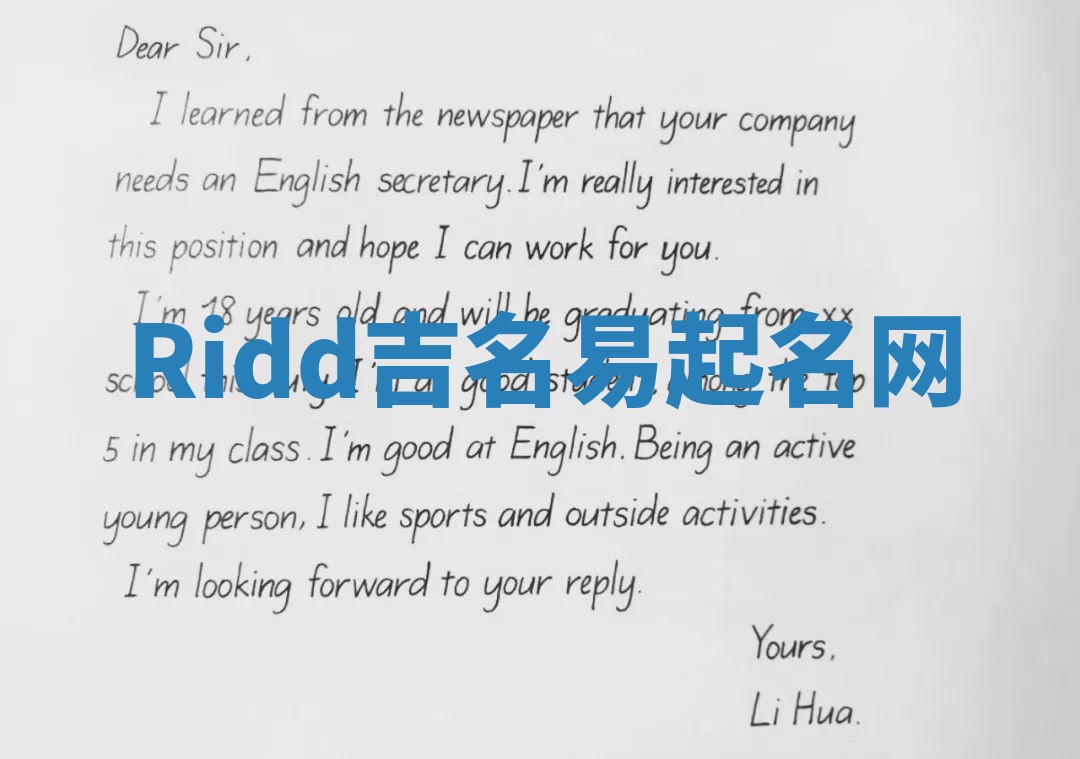 Dear Sir,
I learned from the newspaper that your company
needs an English secretary. I'm really interested in
this position and hope I can work for you.
I'm 18 years old and will be graduating from xx
Ridd吉名易起名网
school this July. I'm a good student, among the top
5 in my class. I'm good at English. Being an active
young person, I like sports and outside activities.
I'm looking forward to your reply.
Yours,
Li Hua.